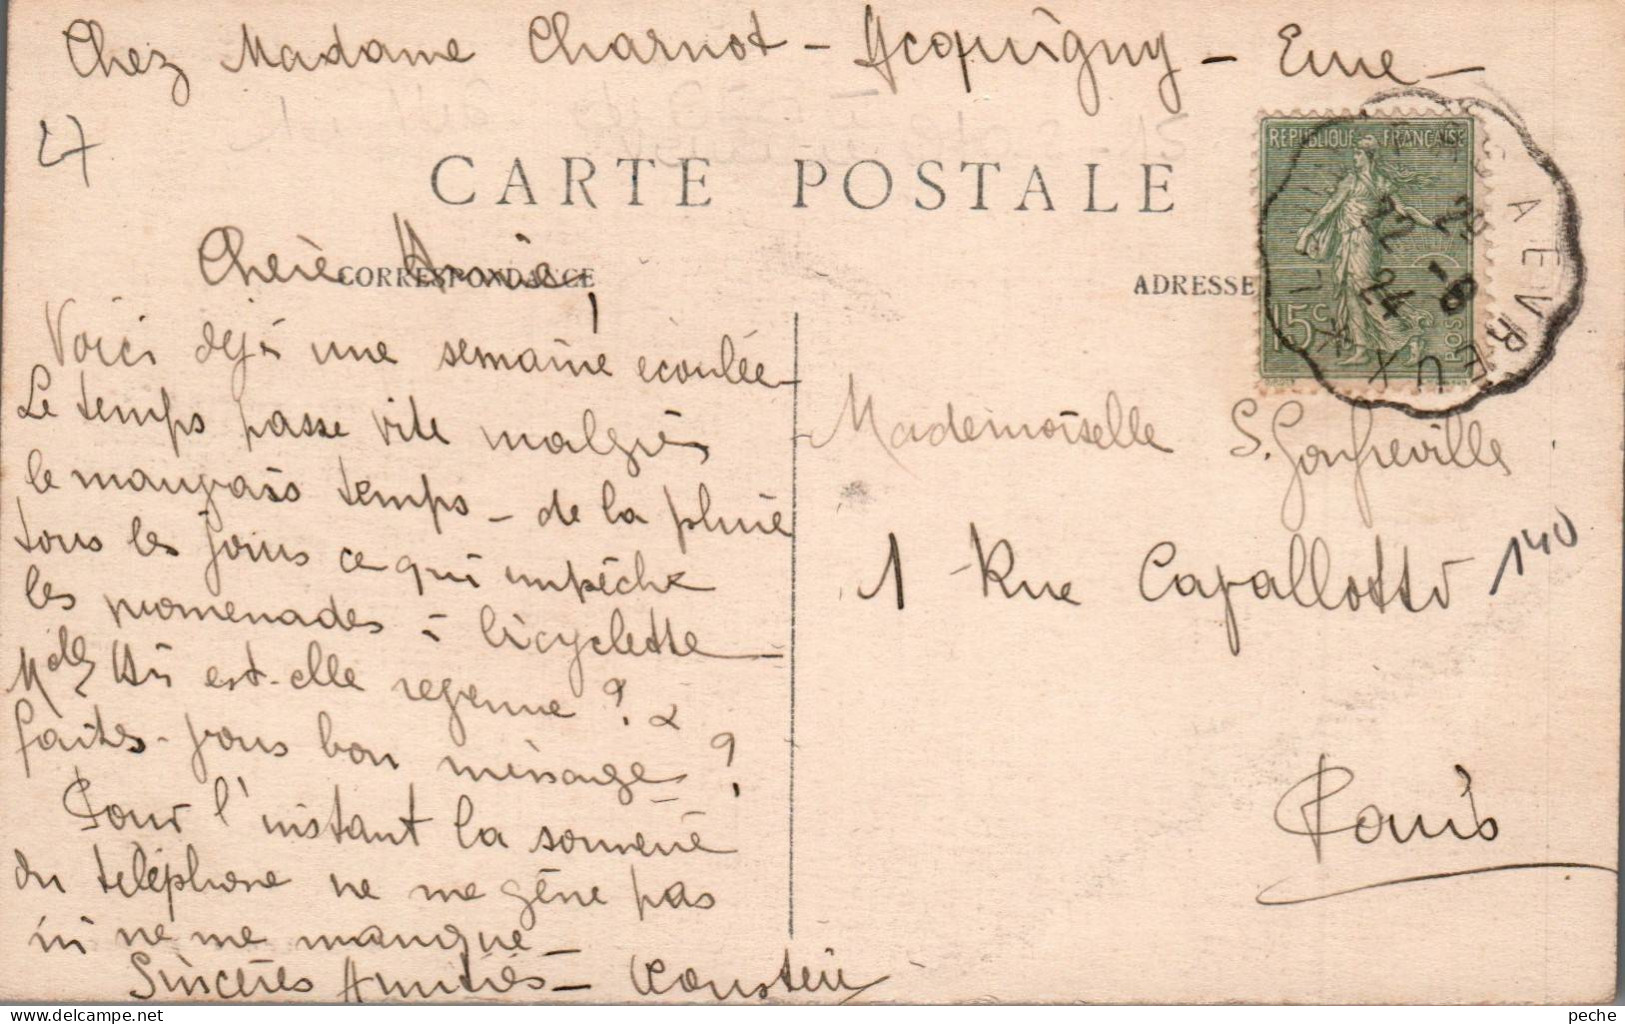 Chez Madame Charnot - Acquigny - Eure -
CARTE POSTALE
REPUBLIQUE FRANÇAISE
15c
POS
A EVREUX
22
24
29 -6
47
CORRESPONDANCE
ADRESSE
Chère Amie,
Voici déjà une semaine écoulée -
Le temps passe vite malgré
le mauvais temps - de la pluie
tous les jours ce qui empêche
les promenades à bicyclette -
est-elle revenue ? &
faites-vous bon ménage ?
Pour l'instant la sonnerie
du téléphone ne me gêne pas
ni ne me manque -
Sincères Amitiés -
Mademoiselle S. Gonfreville
1 Rue Cavallotti
140
Paris
peche